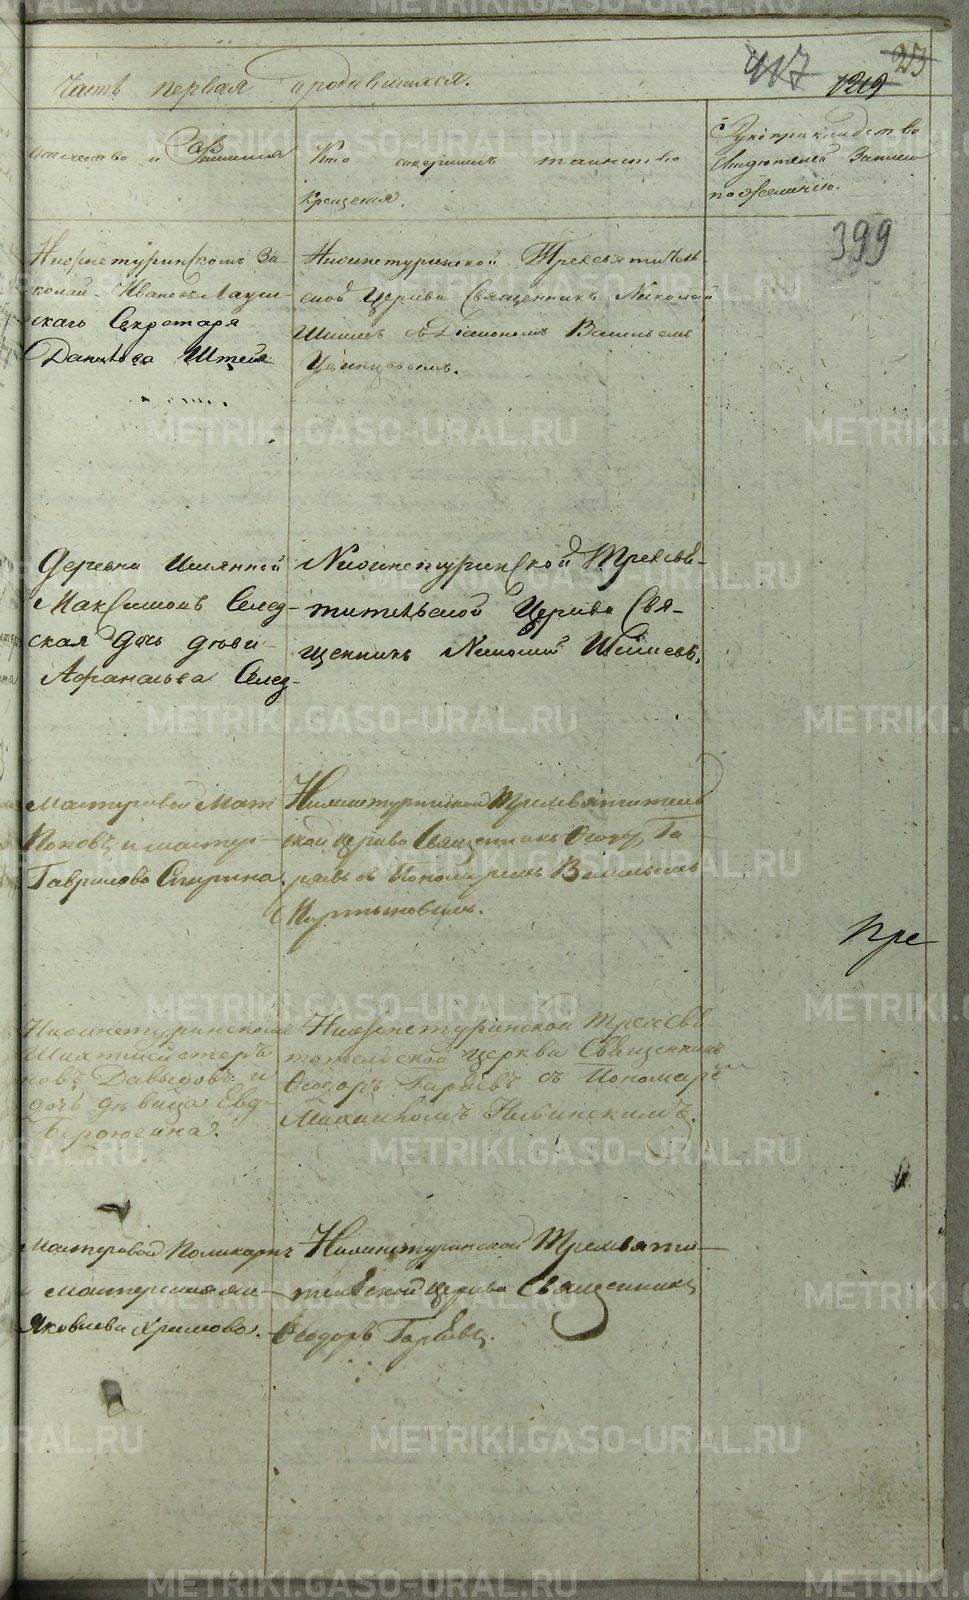 Часть первая о родившихся.
417
1219
23
Отечество и Фамилия
Кто совершилъ таинство
Крещения.
Рукоприкладство
Свидетелей Записи
по желанию.
399
Нижнетуринскомъ За-
колай Ивановъ
скаго Секретаря
Данилова Штейн
Нижнетуринской Трехсвятитель
ской Церкви Священникъ Николай
Шишев с Диакономъ Васильемъ
Деревни Именной
Максимовъ Селез-
ская дочь девица
Афанасьева Селез-
Нижнетуринской Трехсвя-
тительской Церкви Свя-
щенникъ Николай Шишевъ.
Мастеровой Мат
Поповъ и мастер-
Гаврилова Спирина.
Нижнетуринской Трехсвятитель
ской церкви Священникъ Феодор Га-
ряевъ с Пономаремъ Васильемъ
Нижнетуринскомъ
Шихтмейстеръ
новъ Давыдовъ и
дочь девица Евд-
Нижнетуринской Трехсвя
тительской церкви Священникъ
Феодоръ Гаряевъ съ Пономаремъ
Михаиломъ Нивинскимъ.
пре
Мастеровой Поликарпъ
и мастерская
Яковлева Хримова.
Нижнетуринской Трехсвяти-
тельской церкви Священникъ
Феодоръ Гаряевъ.
METRIKI.GASO-URAL.RU